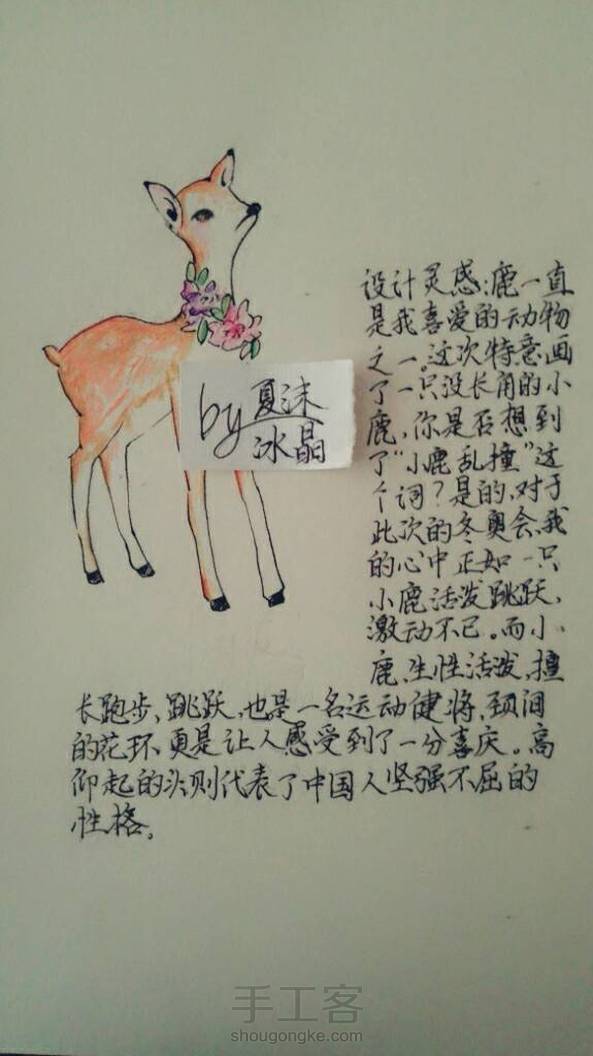 设计灵感:鹿一直
是我喜爱的动物
之一。这次特意画
了一只没长角的小
鹿,你是否想到
了“小鹿乱撞”这
个词?是的,对于
此次的冬奥会,我
的心中正如一只
小鹿活泼跳跃,
激动不已。而小
鹿,生性活泼,擅
长跑步、跳跃,也是一名运动健将,颈间
的花环,更是让人感受到了一分喜庆。高
仰起的头则代表了中国人坚强不屈的
性格。
by夏沫
冰晶
手工客
shougongke.com